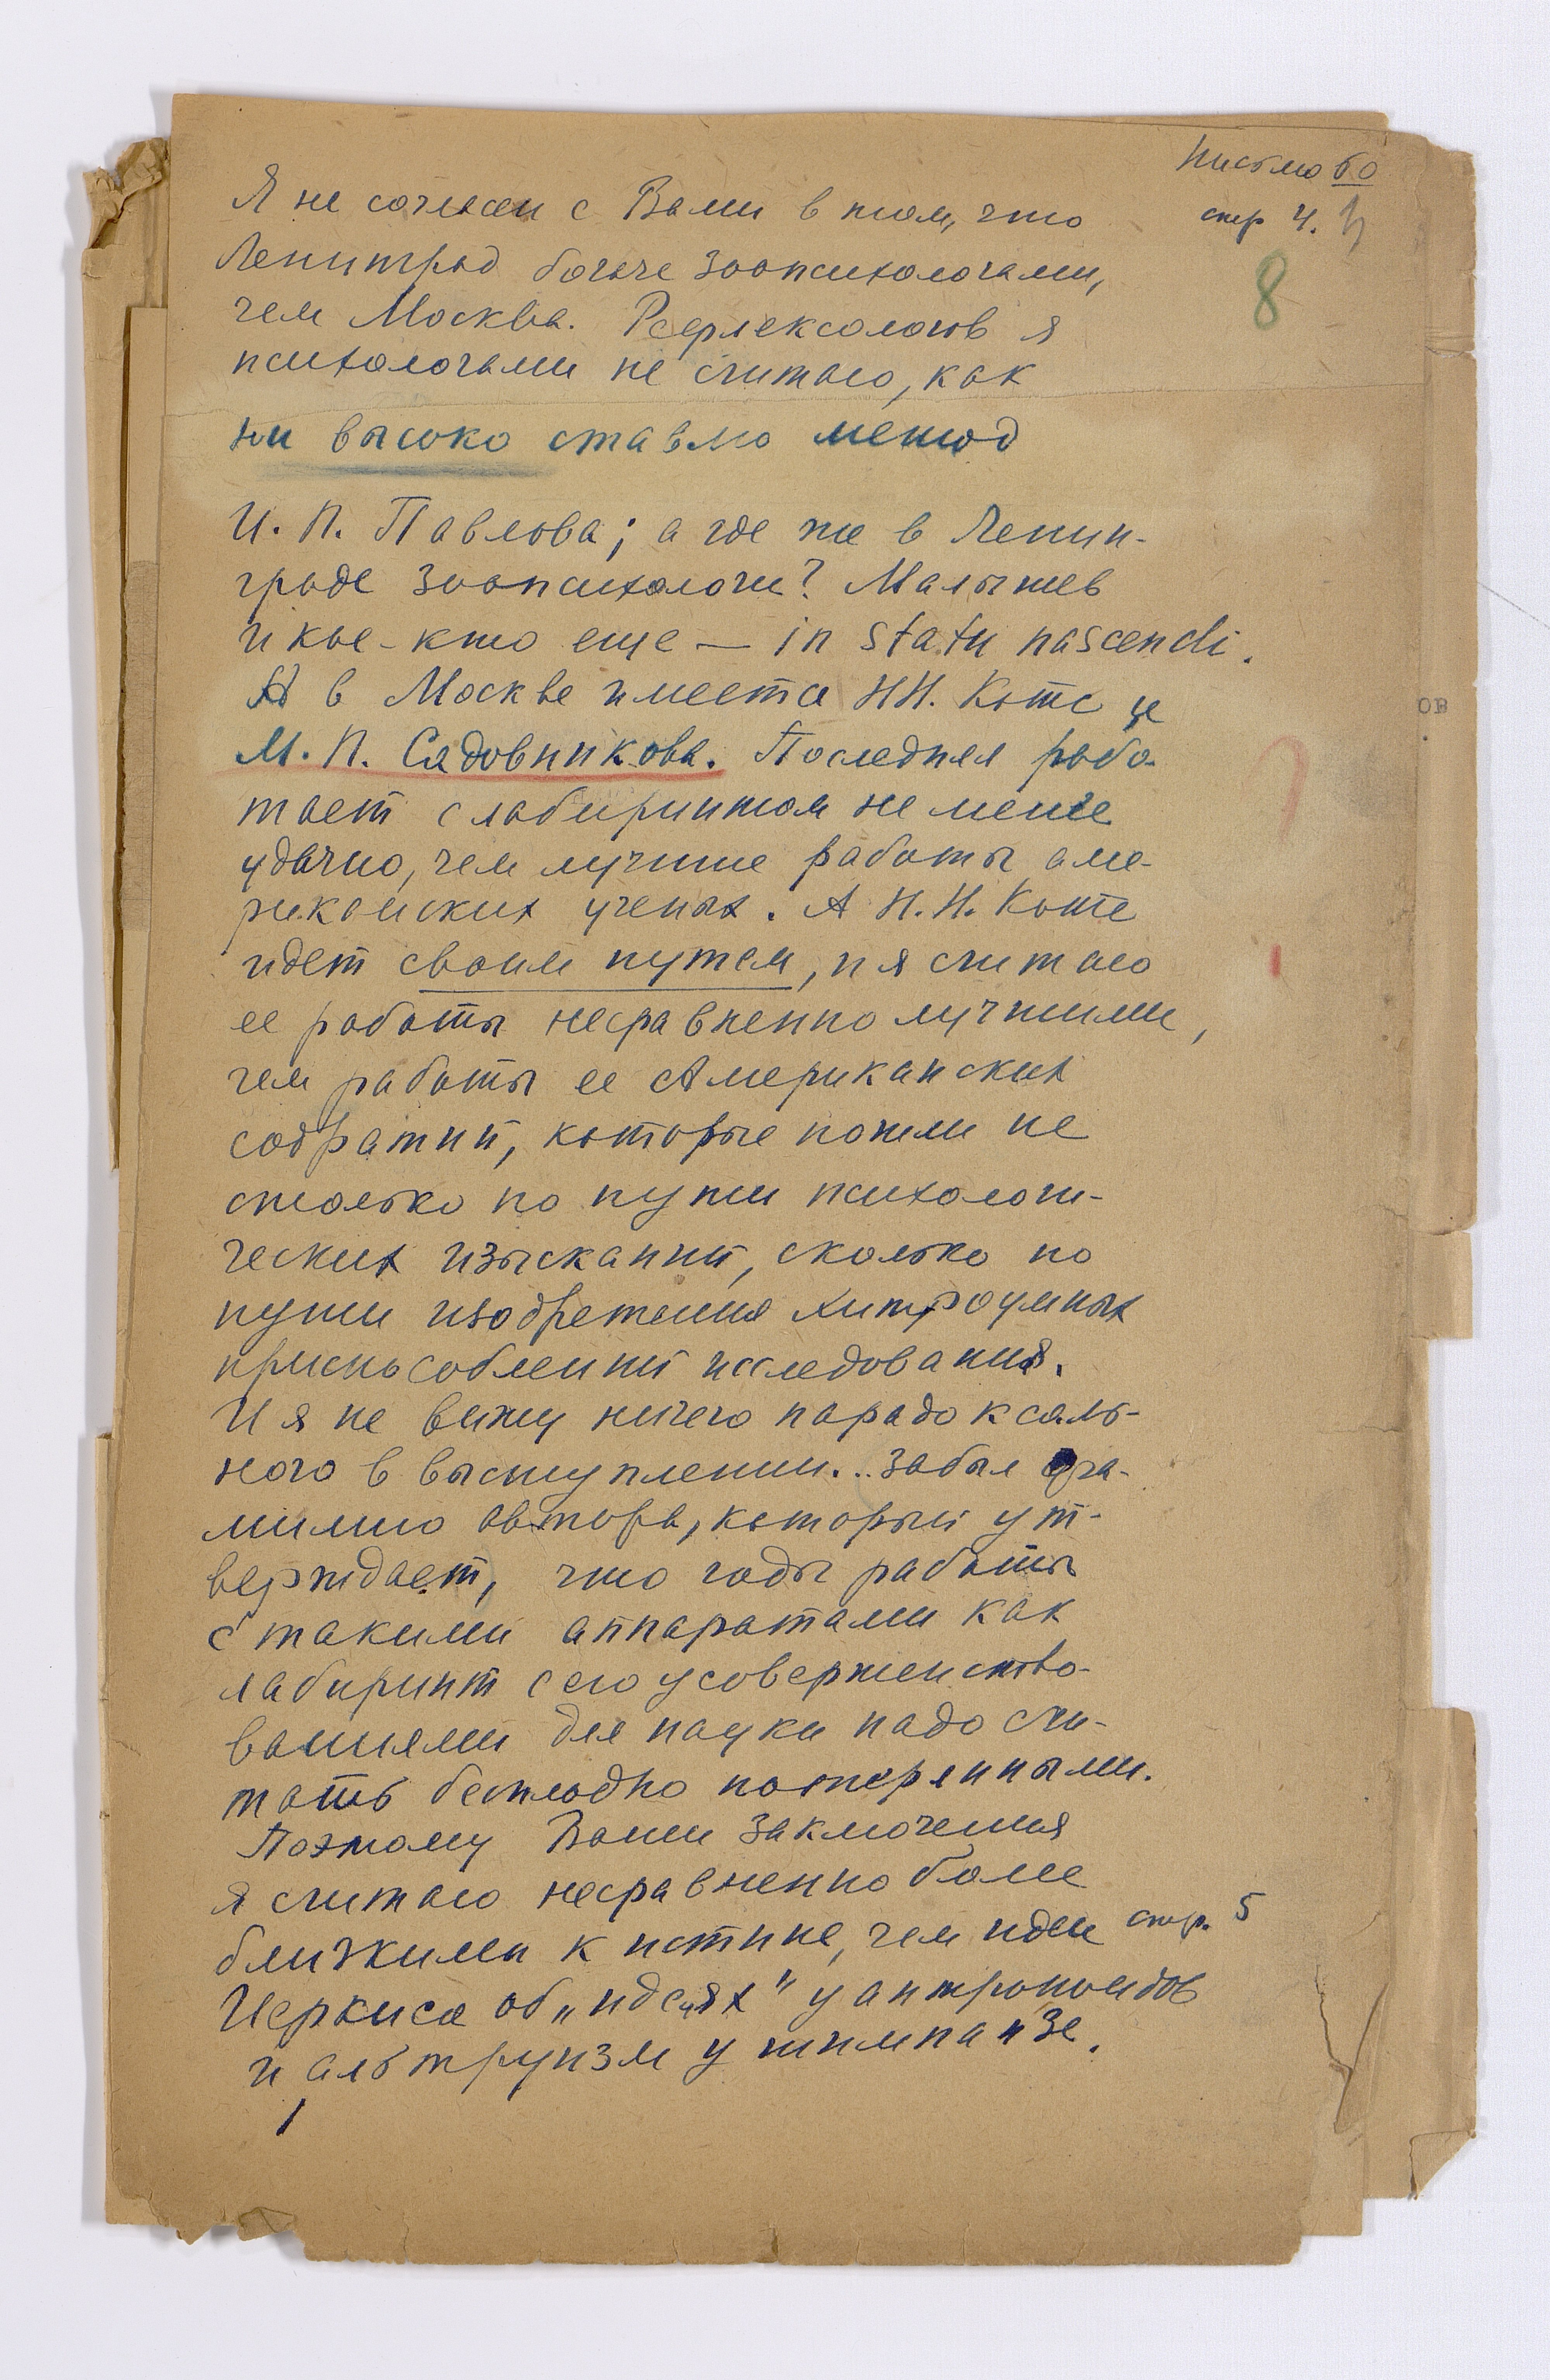 Письмо 60
стр 4.
8
Я не согласен с Вами в том, что
Ленинград богаче зоопсихологами,
чем Москва. Рефлексологов я
психологами не считаю, как
ни высоко ставлю метод
И. П. Павлова; а где же в Ленин-
граде зоопсихологи? Малышев
и кое-кто еще — in statu nascendi.
А в Москве имеется НН. Котс и
М. П. Садовникова. Последняя рабо-
тает с лабиринтом не менее
удачно, чем лучшие работы аме-
риканских ученых. А Н.Н. Котс
идет своим путем, и я считаю
ее работы несравненно лучшими,
чем работы ее Американских
собратий, которые пошли не
столько по пути психологи-
ческих изысканий, сколько по
пути изобретения хитроумных
приспособлений исследования.
И я не вижу ничего парадоксаль-
ного в выступлении... забыл фа-
милию автора, который ут-
верждает, что годы работы
с такими аппаратами как
лабиринт с его усовершенство-
ваниями для науки надо счи-
тать бесплодно потерянными.
Поэтому Ваши заключения
я считаю несравненно более
близкими к истине, чем идеи стр. 5
Иеркиса об „идеях" у антропоидов
и альтруизм у шимпанзе.
ов